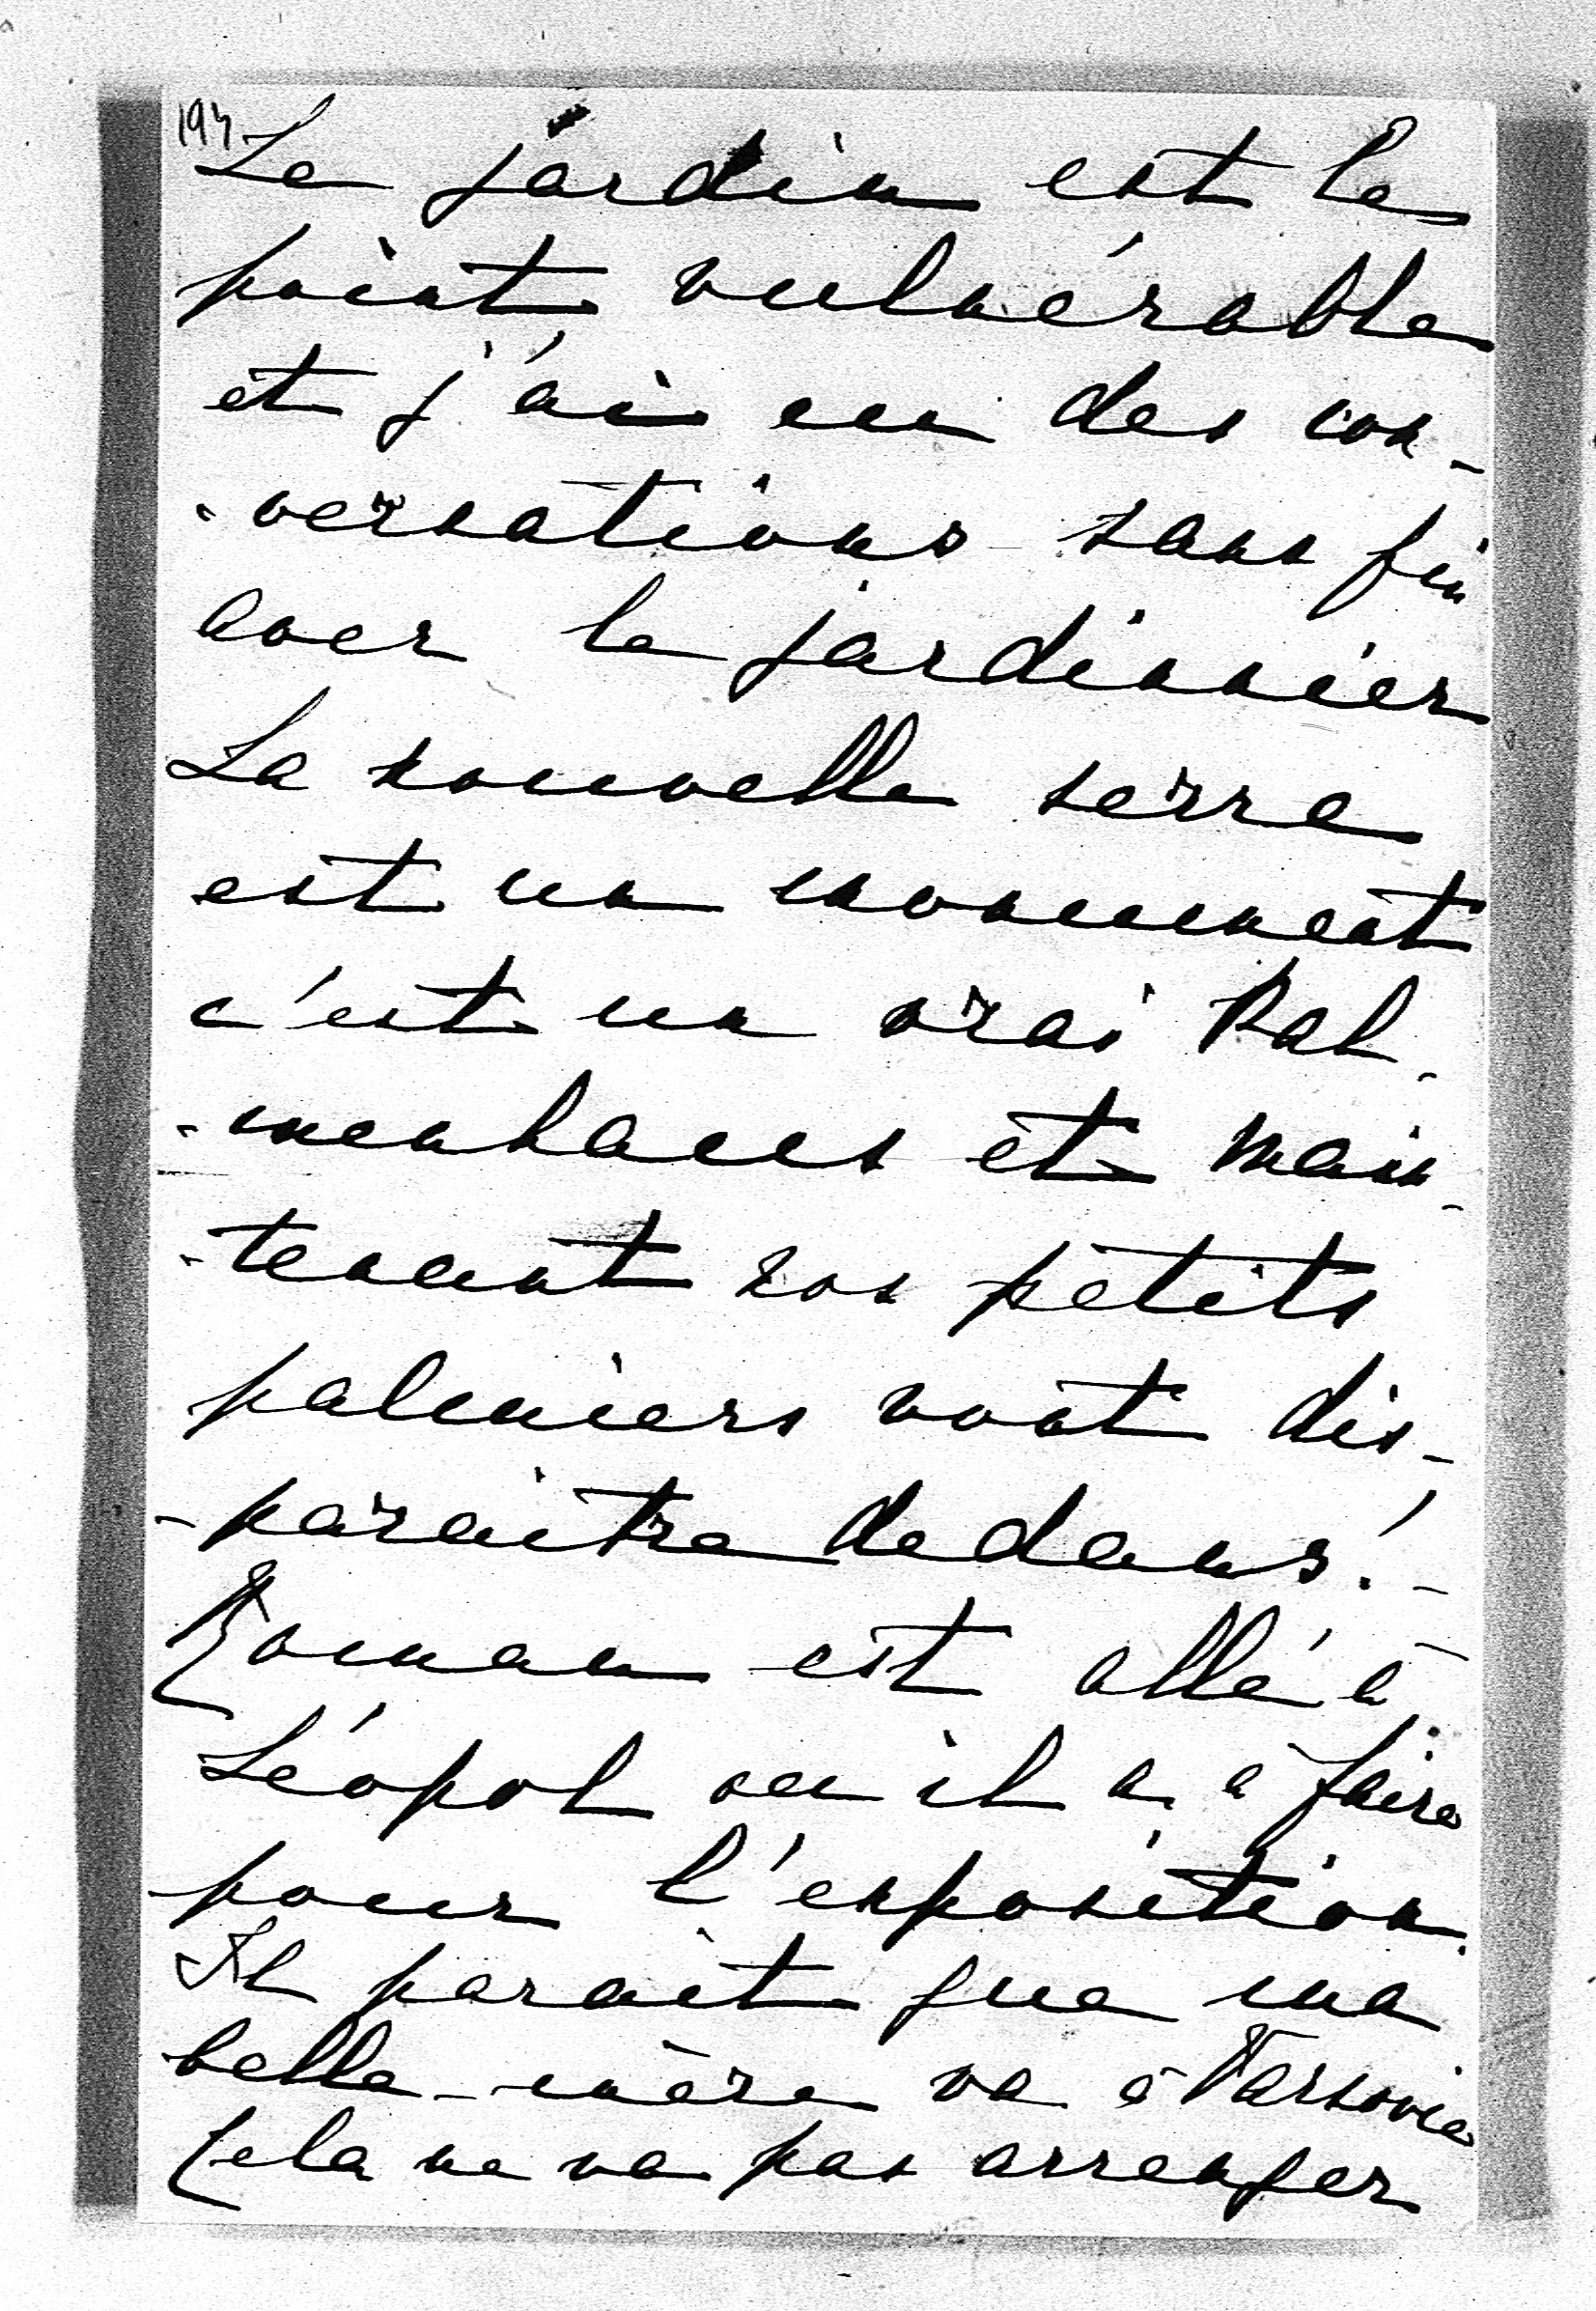 Le jardin est le
point vulnérable
et j'ai eu des con-
-versations sans fin
avec le jardinier
La nouvelle serre
est un monument
c'est un vrai Pal-
-menhaus et main-
-tenant nos petits
palmiers vont dis-
-paraitre dedans! -
Roman est allé à
Léopol ou il a à faire
pour l'exposition.
Il parait que ma
belle-mère va à Varsovie
Cela ne va pas arranger